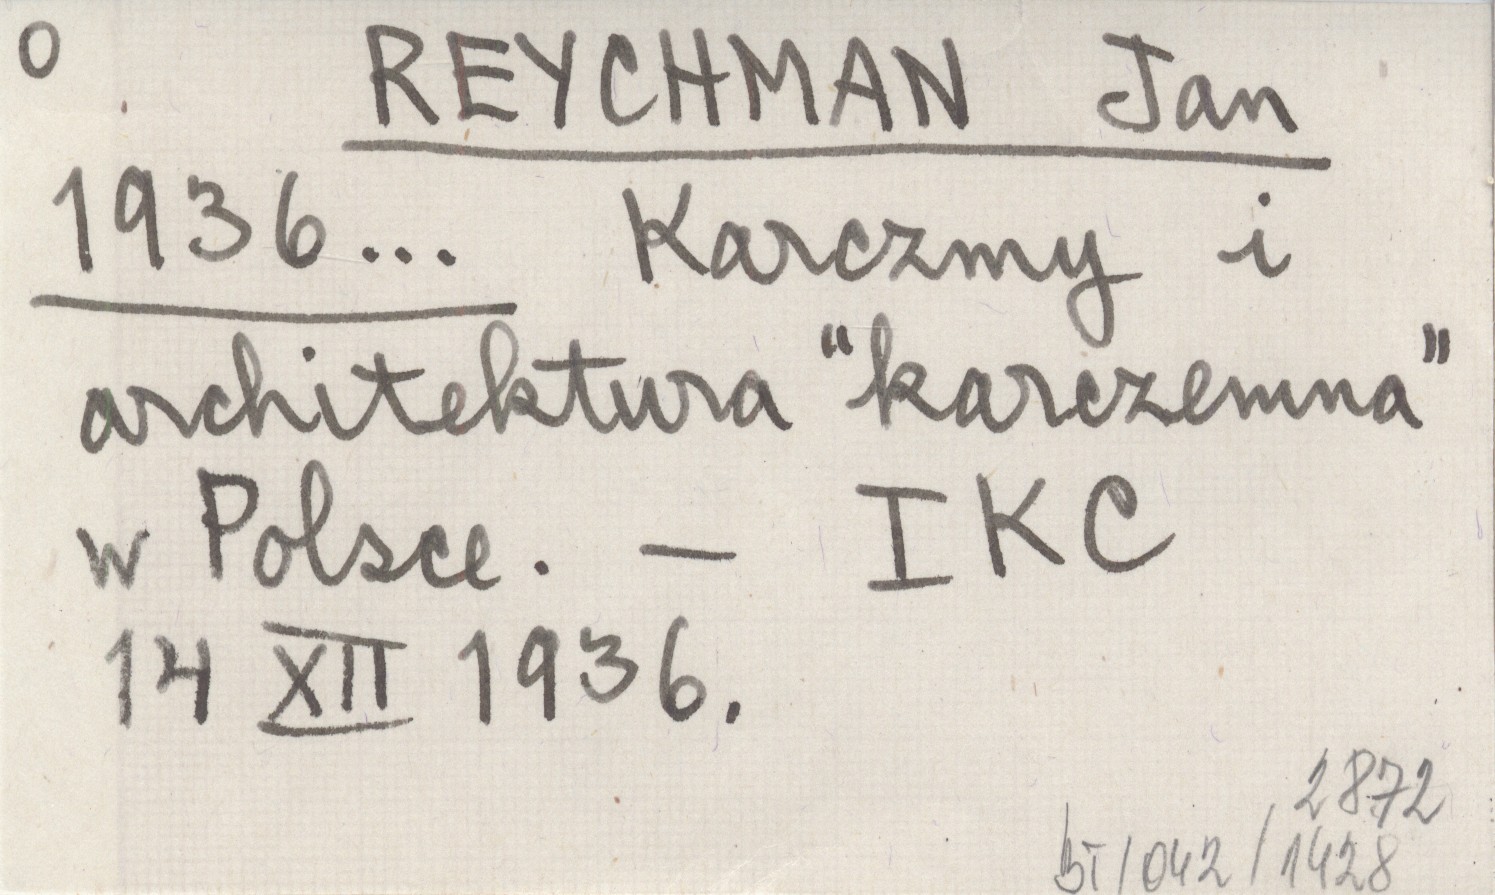 O REYCHMAN Jan
1936... Karczmy i
architektura "karczemna"
w Polsce. — IKC
14 XII 1936.
2872
BT/042/1428